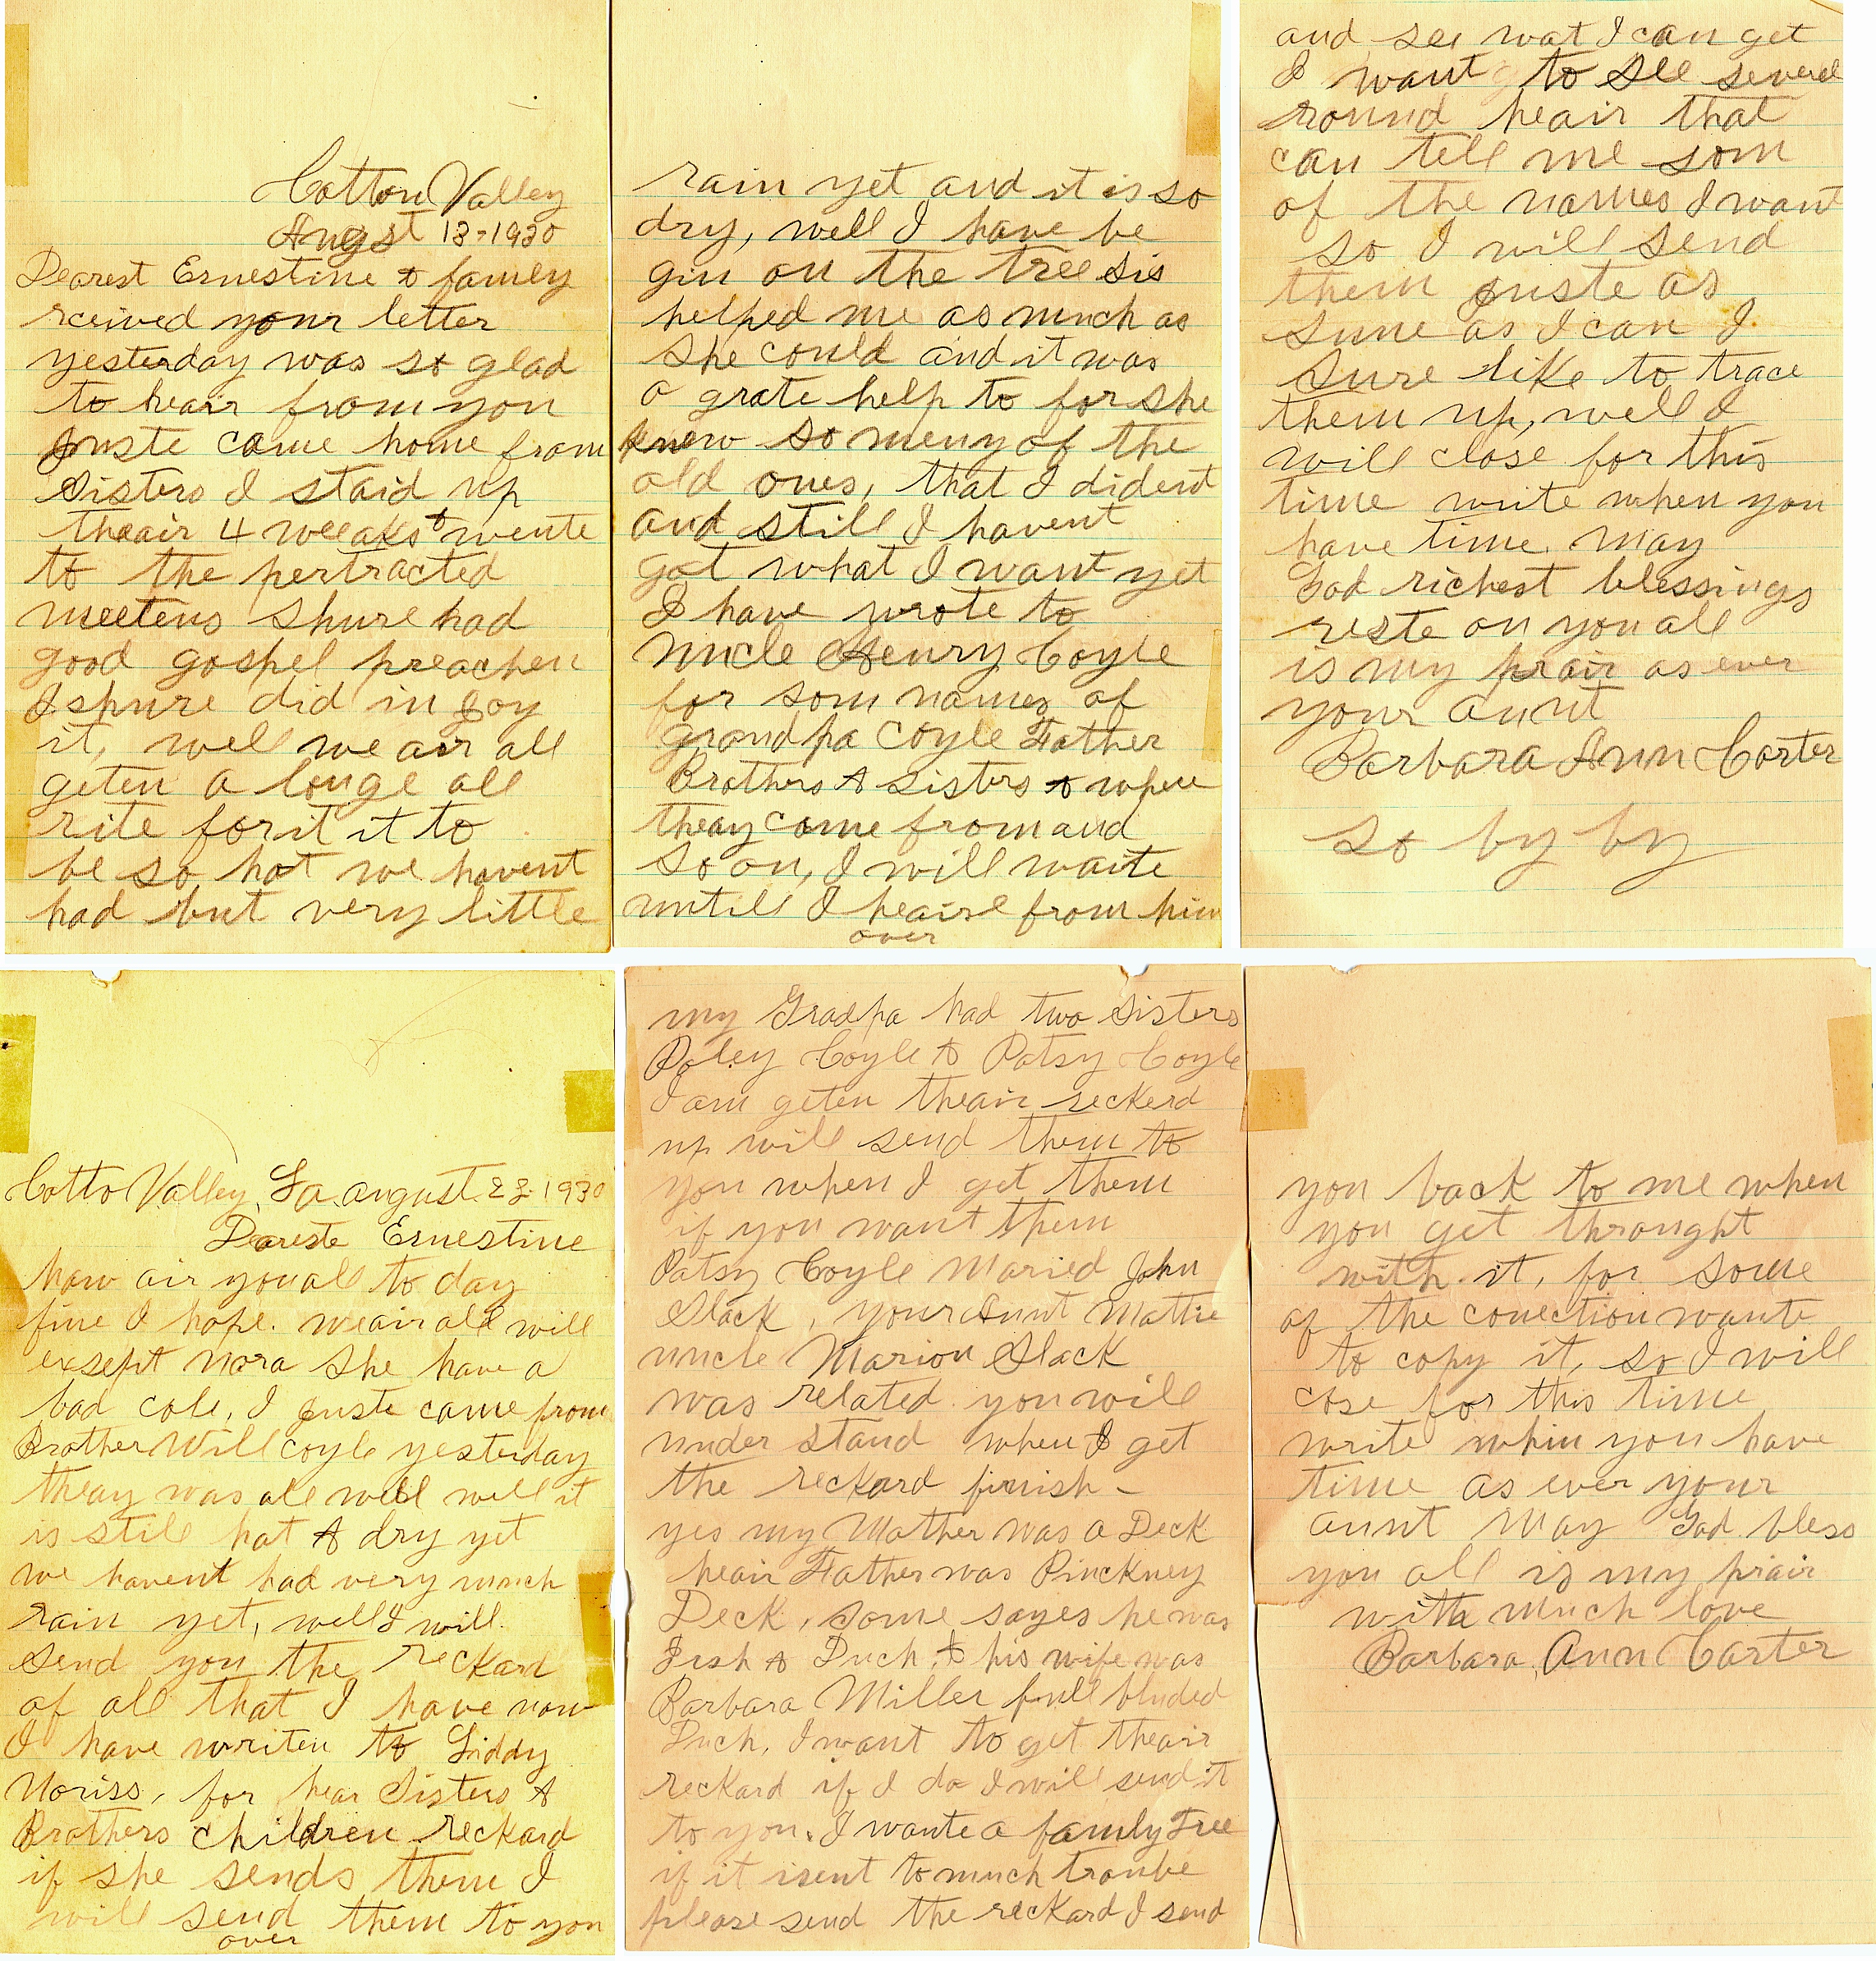 Cotton Valley
Augst 13-1930
Dearest Ernestine & family
rceived your letter
yesterday was so glad
to heair from you
Juste came home from
Sisters I staid up
theair 4 weeaks & wente
to the pertracted
meetens Shure had
good gospel preachen
I shure did in joy
it, well we air all
geten a longe all
rite for it it to
be so hot we havent
had but very little
rain yet and it is so
dry, well I have be
gin on the tree sis
helped me as much as
she could and it was
a grate help to for she
knew so meny of the
old ones, that I dident
and still I havent
got what I want yet
I have wrote to
Uncle Henry Coyle
for som names of
grandpa Coyle Father
Brothers & Sisters & where
theay come from and
so on, I will waite
untill I heaire from him
over
and see wat I can get
I want to see several
round heair that
can tell me som
of the names I want
so I will send
them juste as
sune as I can I
Sure like to trace
them up, well I
will close for this
time write when you
have time. May
God richest blessings
reste on you all
is my prair as ever
your aunt
Barbara Ann Carter
so by by
Cotto Valley, La. august 23-1930
Deareste Ernestine
how air you all to day
fine I hope. we air all will
exsept Nora She have a
bad cole, I juste came from
Brother Will Coyle yesterday
theay was all well well it
is still hot & dry yet
we havent had very much
rain yet, well I will
send you the reckard
of all that I have now
I have writen to Liddy
Noriss, for hear Sisters &
Brothers children reckard
if she sends them I
will send them to you
over
my Gradpa had two Sisters
Poley Coyle & Patsy Coyle
I am geten theair reckerd
up will send them to
you when I get them
if you want them
Patsy Coyle Maried John
Slack, your Aunt Mattie
uncle Marion Slack
was related you will
under stand when I get
the reckard finish -
yes my Mother was a Deck
heair Father was Pinckney
Deck, some sayes he was
Irsh & Duch, & his wife was
Barbara Miller full bluded
Duch, I want to get theair
reckard if I do I will send it
to you. I wante a family Tree
if it isent to much trouble
please send the reckard I send
you back to me when
you get throught
with it, for some
of the conection wante
to copy it, so I will
close for this time
write whin you have
time as ever your
aunt May God bless
you all is my prair
with much love
Barbara Ann Carter